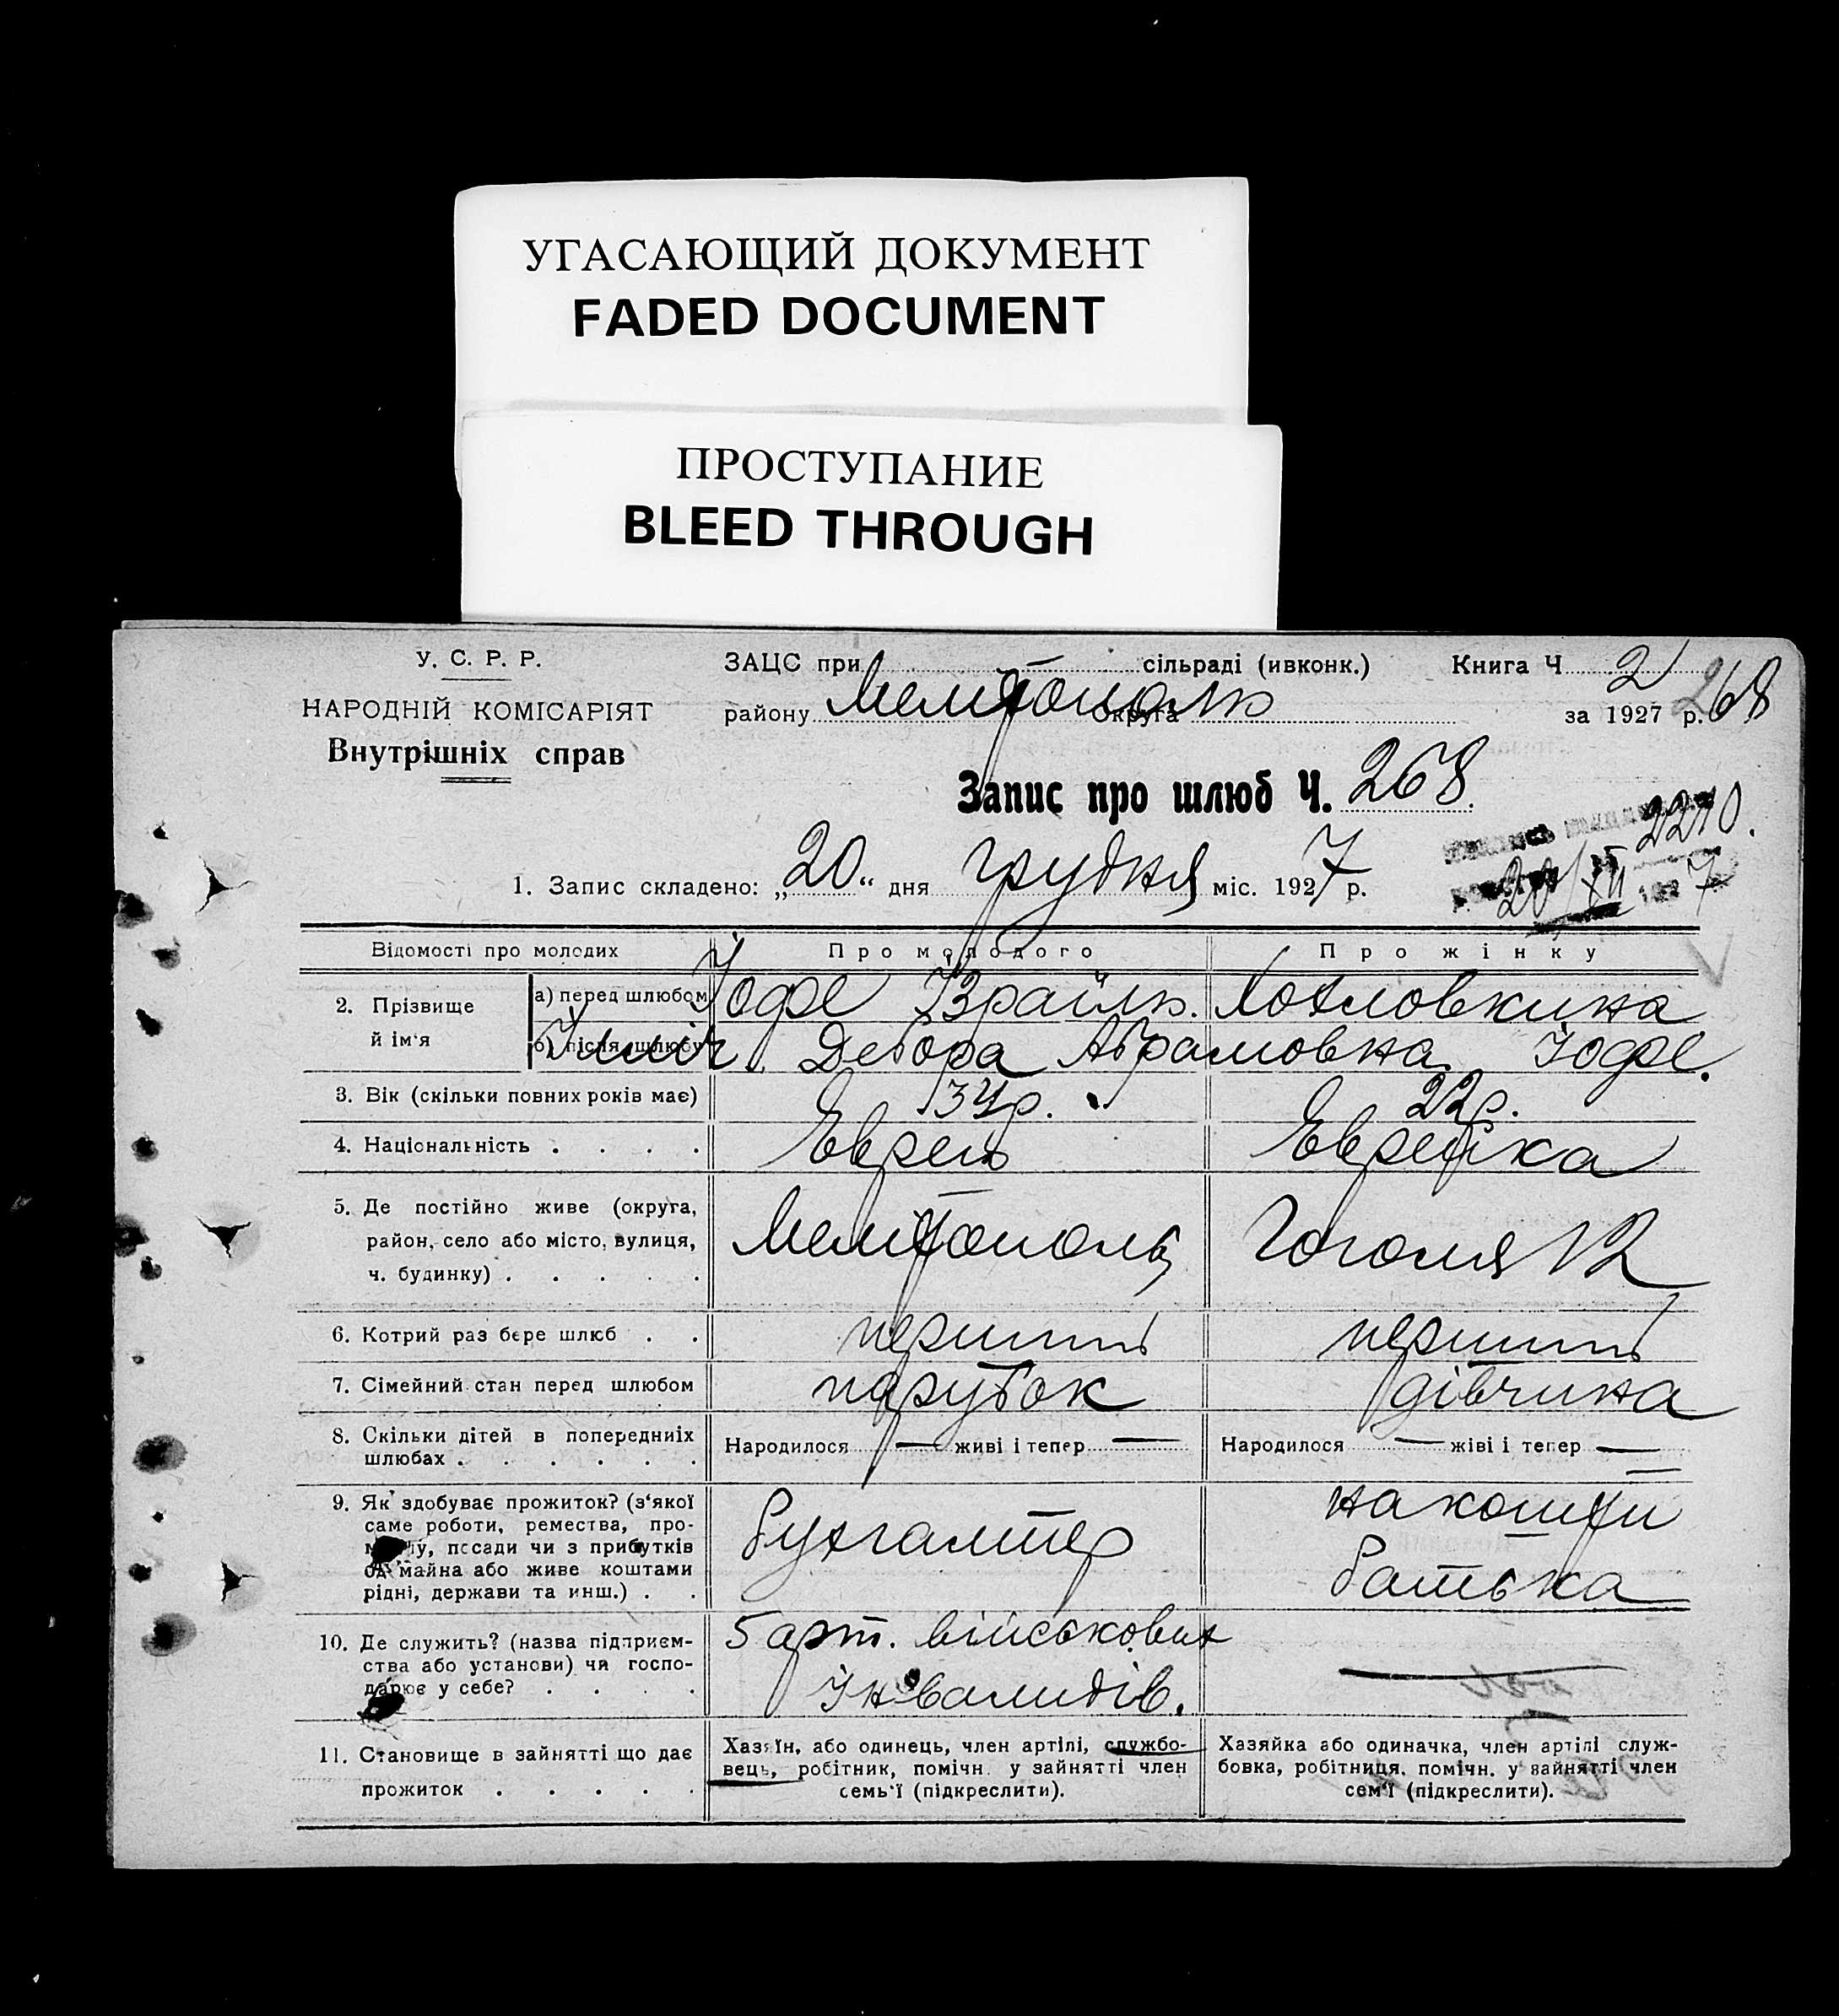 УГАСАЮЩИЙ ДОКУМЕНТ
FADED DOCUMENT
ПРОСТУПАНИЕ
BLEED THROUGH
У. С. Р. Р.
НАРОДНІЙ КОМІСАРІЯТ
Внутрішніх справ
ЗАЦС при сільраді (ивконк.) Книга Ч 2
району Мелітополь округа за 1927 р. 268
Запис про шлюб Ч. 268
2210.
20/XII 1927
1. Запис складено: „20“ дня грудня міс. 1927 р.
Відомості про молодих Про молодого Про жінку
2. Прізвище й ім'я
а) перед шлюбом Іофе Ізраїль. Хотловкина
б) після шлюбу Дебора Абрамовна Іофе.
3. Вік (скільки повних років має) 34р. 22р.
4. Національність . . . . Еврей Еврейка
5. Де постійно живе (округа,
район, село або місто, вулиця,
ч. будинку) . . . . .
Мелітополь Гоголя 12
6. Котрий раз бере шлюб . . перший перший
7. Сімейний стан перед шлюбом парубок дівчина
8. Скільки дітей в попередниіх
шлюбах . . . . . .
Народилося — живі і тепер — Народилося — жіві і тепер —
9. Як здобуває прожиток? (з'якої
саме роботи, ремества, про-
у, посади чи з прибутків
од майна або живе коштами
рідні, держави та инш.) . .
Бухгалтер на кошти
батька
10. Де служить? (назва підприєм-
ства або установи) чи госпо-
дарює у себе? . . . .
5 арт. військових
інвалидів. —
11. Становище в зайнятті що дає
прожиток . . . . .
Хазяїн, або одинець, член артілі, службо-
вець, робітник, помічн. у зайнятті член
семь'ї (підкреслити).
Хазяйка або одиначка, член артілі служ-
бовка, робітниця, помічн. у зайнятті член
сем'ї (підкреслити).